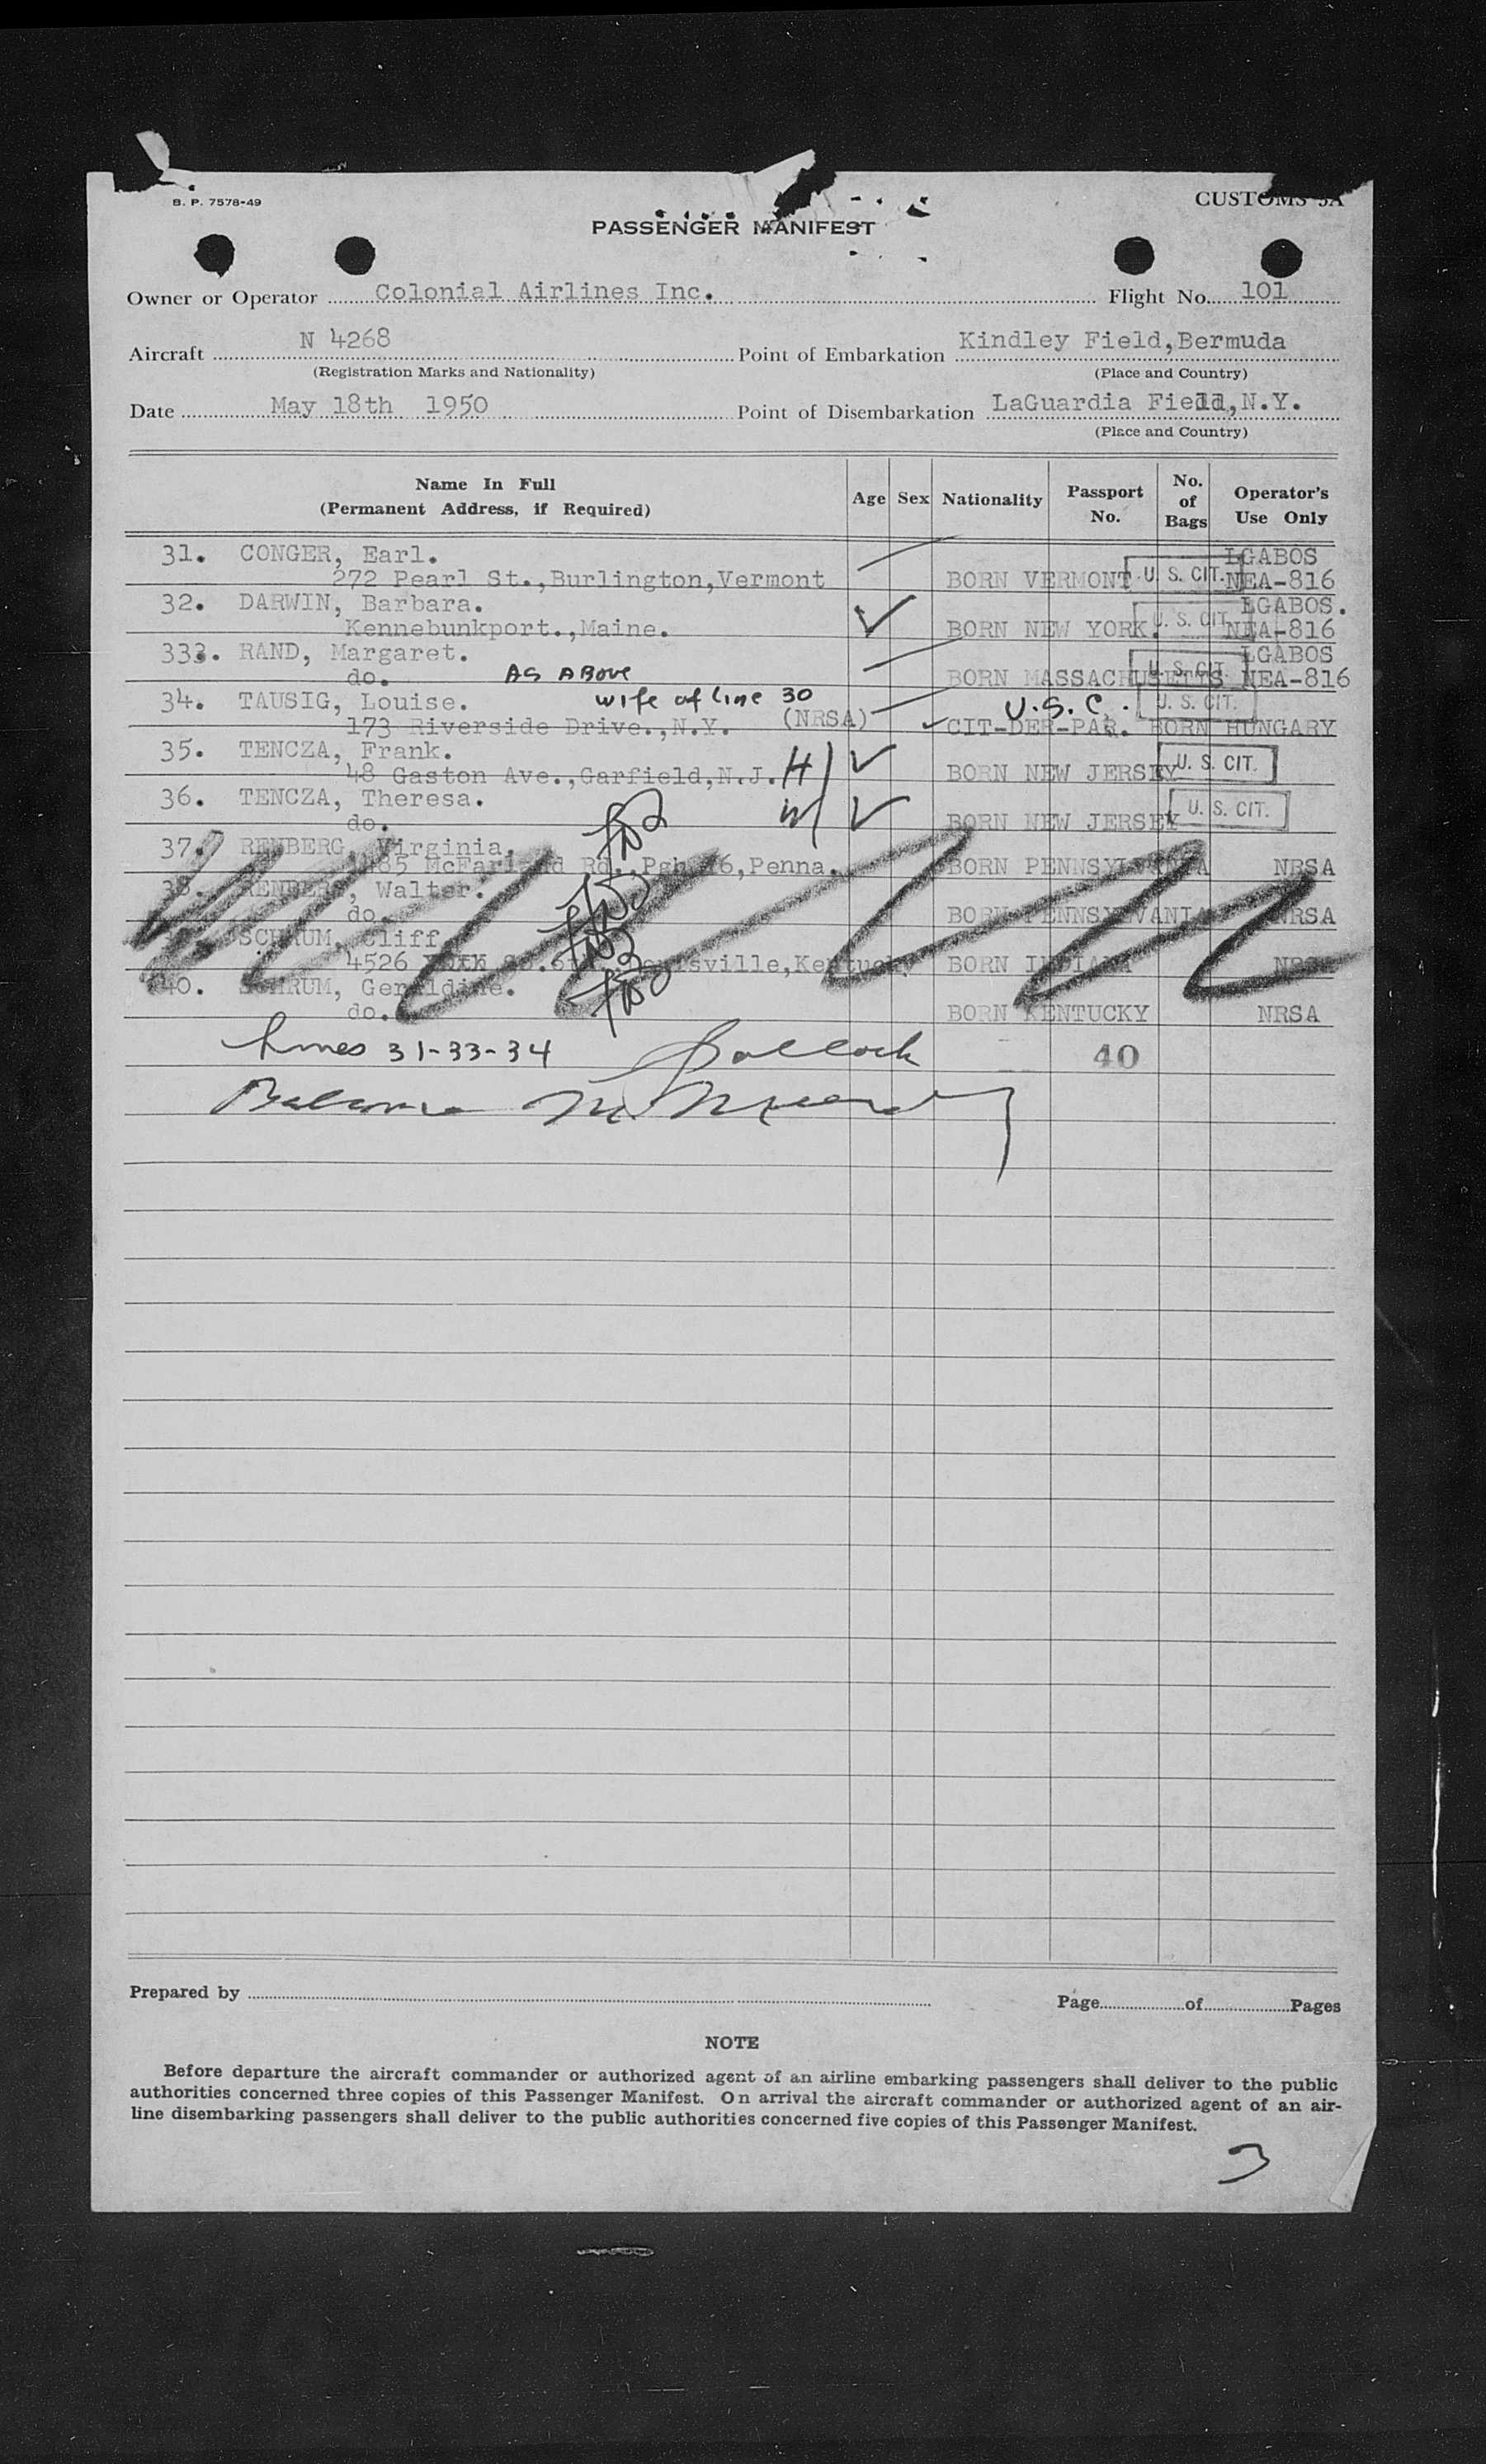 B. P. 7578-49
CUSTOMS 5A
PASSENGER MANIFEST
Owner or Operator Colonial Airlines Inc. Flight No. 101
Aircraft N 4268 Point of Embarkation Kindley Field,Bermuda
(Registration Marks and Nationality) (Place and Country)
Date May 18th 1950 Point of Disembarkation LaGuardia Field,N.Y.
(Place and Country)
Name In Full (Permanent Address, if Required) Age Sex Nationality Passport No. No. of Bags Operator's Use Only
31. CONGER, Earl. LGABOS
272 Pearl St.,Burlington,Vermont BORN VERMONT U. S. CIT. NEA-816
32. DARWIN, Barbara. LGABOS.
Kennebunkport.,Maine. BORN NEW YORK. U. S. CIT. NEA-816
333. RAND, Margaret. LGABOS
do. AS ABOVE BORN MASSACHUSETTS U. S. CIT. NEA-816
34. TAUSIG, Louise. wife of line 30 U.S.C. U. S. CIT.
173 Riverside Drive.,N.Y. (NRSA) CIT-DER-PAR. BORN HUNGARY
35. TENCZA, Frank.
48 Gaston Ave.,Garfield,N.J. H BORN NEW JERSEY U. S. CIT.
36. TENCZA, Theresa. W
do. BORN NEW JERSEY U. S. CIT.
37. RENBERG, Virginia.
McFarland Rd.,Pgh 16,Penna. BORN PENNSYLVANIA NRSA
38. RENBERG, Walter.
do. BORN PENNSYLVANIA NRSA
SCHRUM, Cliff
4526 Louisville,Kentucky BORN INDIANA NRSA
40. SCHRUM, Geraldine.
do. BORN KENTUCKY NRSA
Lines 31-33-34 Pollock 40
Balance
Prepared by Page of Pages
NOTE
Before departure the aircraft commander or authorized agent of an airline embarking passengers shall deliver to the public
authorities concerned three copies of this Passenger Manifest. On arrival the aircraft commander or authorized agent of an air-
line disembarking passengers shall deliver to the public authorities concerned five copies of this Passenger Manifest.
3